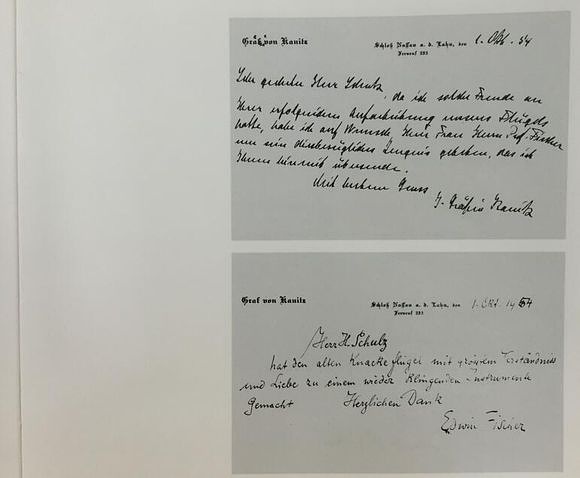 Gräfin von Kanitz
Schloß Nassau a. d. Lahn, den 1. Okt. 54
Fernruf 293
Sehr geehrter Herr Schulz,
da ich solche Freude an
Ihrer erfolgreichen Aufarbeitung unseres Flügels
hatte, habe ich auf Wunsch Ihrer Frau Herrn Prof. Fischer
um ein diesbezügliches Zeugnis gebeten, das ich
Ihnen hiermit übersende.
Mit bestem Gruss
Gräfin Kanitz
Graf von Kanitz
Schloß Nassau a. d. Lahn, den 1. Okt. 1954
Fernruf 293
Herr H. Schulz
hat den alten Knacke flügel mit grossem Verständniss
und Liebe zu einem wieder klingenden Instrumente
gemacht Herzlichen Dank
Edwin Fischer